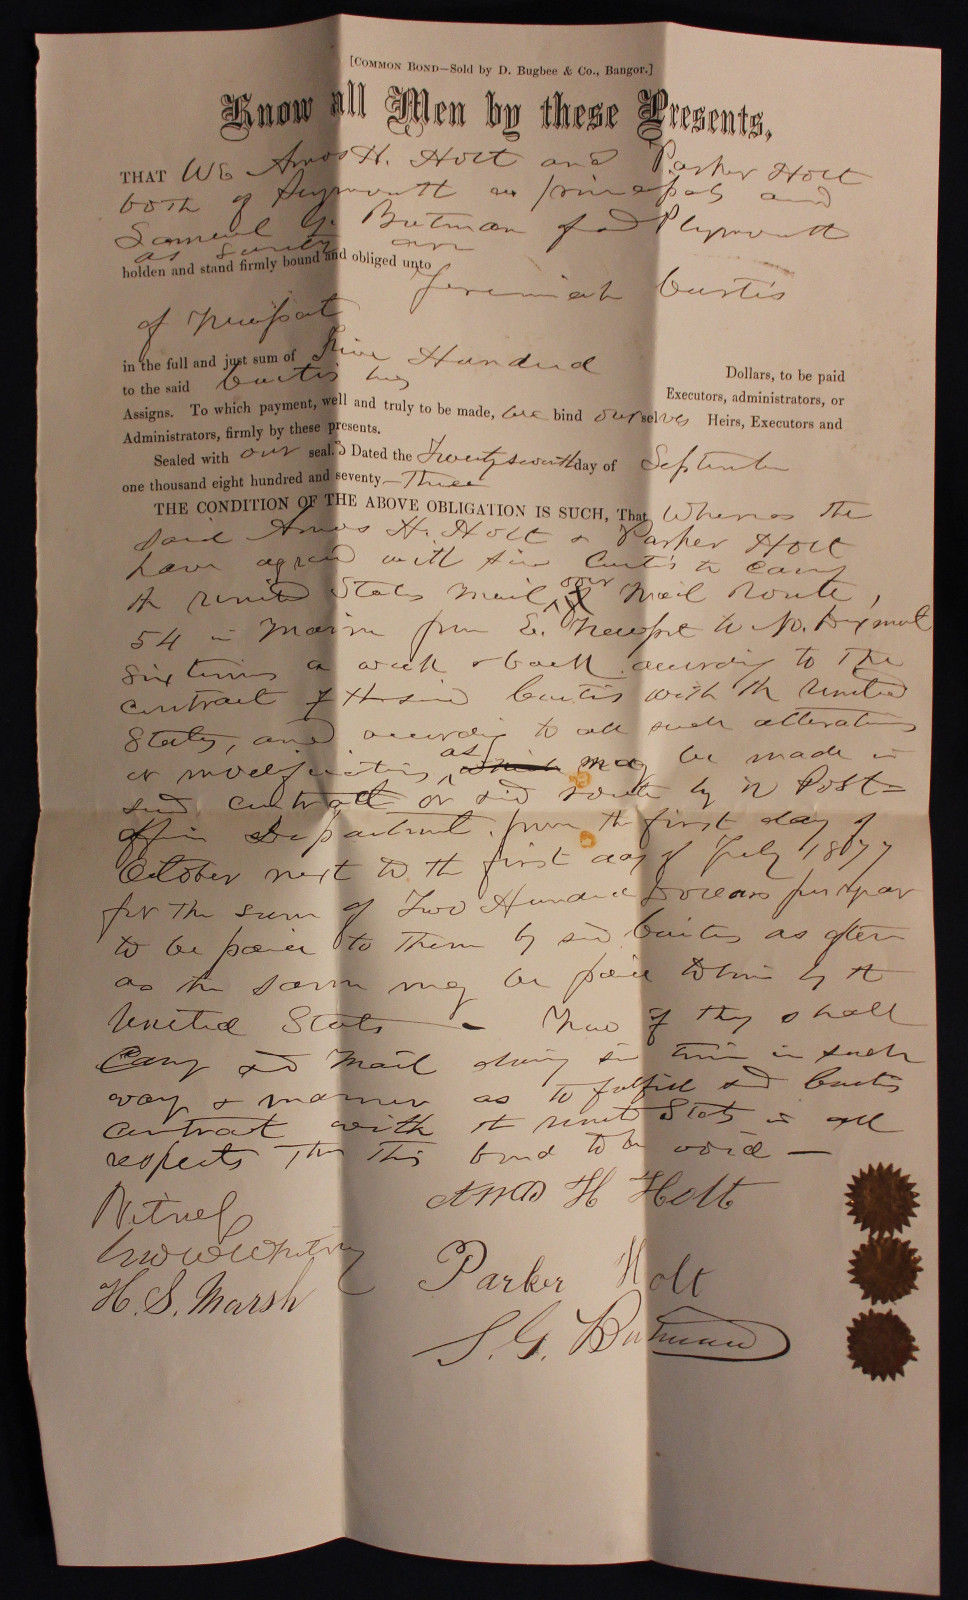 [COMMON BOND—Sold by D. Bugbee & Co., Bangor.]
Know all Men by these Presents,
THAT We Amos H. Holt and Parker Holt
both of Plymouth as principals and
Samuel G. Butman of sd Plymouth
as surety are
holden and stand firmly bound and obliged unto
Jeremiah Curtis
of Newport
in the full and just sum of Five Hundred
Dollars, to be paid
to the said Curtis his
Executors, administrators, or
Assigns. To which payment, well and truly to be made, we bind ourselves Heirs, Executors and
Administrators, firmly by these presents.
Sealed with our seals Dated the Twenty seventh day of September
one thousand eight hundred and seventy-Three
THE CONDITION OF THE ABOVE OBLIGATION IS SUCH, That Whereas the
said Amos H. Holt & Parker Holt
have agreed with sd Curtis to carry
the United States Mail over Mail Route,
54 in Maine from E. Newport to No. Dixmont
Six times a week & back according to the
contract of the said Curtis with the United
States, and according to all such alterations
or modifications as may be made in
said contract or sd route by the Post-
office Department from the first day of
October next to the first day of July 1877
for the sum of Two Hundred Dollars per year
to be paid to them by sd Curtis as often
as the same may be paid to him by the
United States - Now if they shall
Carry sd Mail during sd time in such
way & manner as to fulfill sd Curtis
contract with the United States in all
respects Then this bond to be void —
Witness
Amos H Holt
Whitney
Parker Holt
H. S. Marsh
S. G. Butman